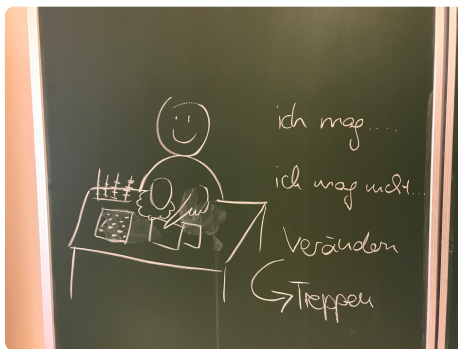 ich mag....
ich mag nicht...
Verändern
Treppen